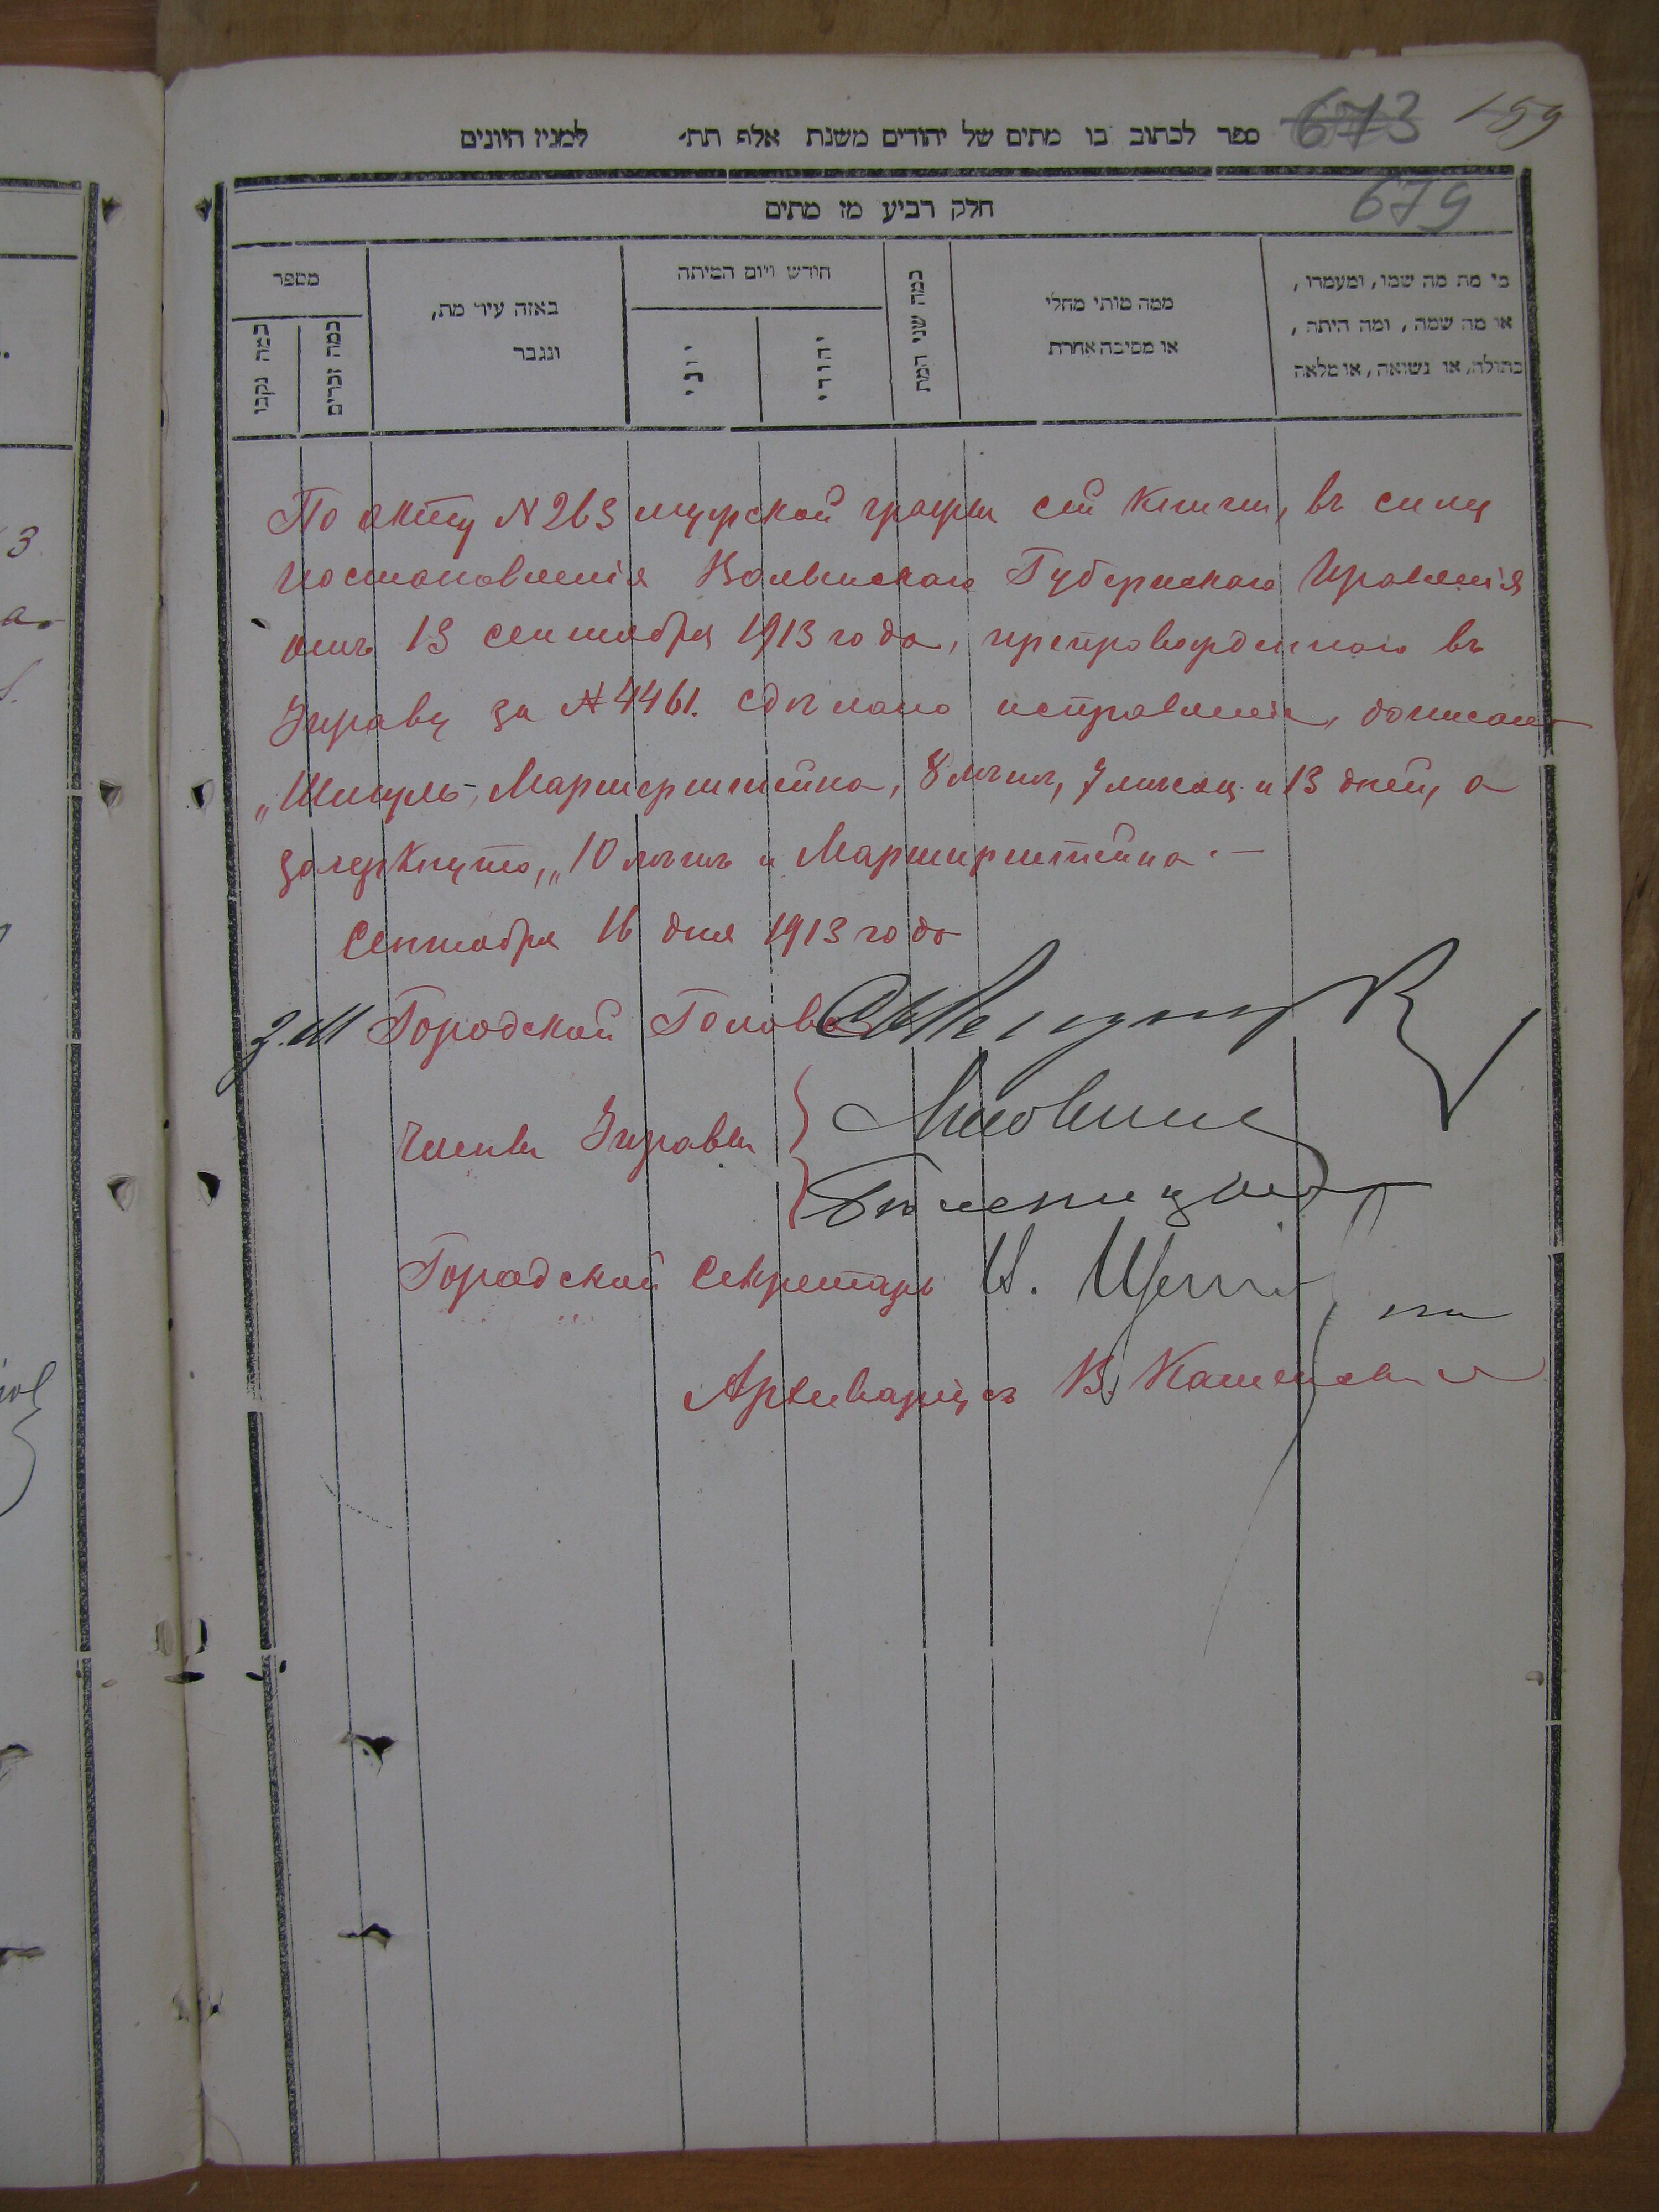 673 159
ספר לכתוב בו מתים של יהודים משנת אלף תת׳ למנין היונים
679
חלק רביע מן מתים
מי מת מה שמו, ומעמדו,
או מה שמה, ומה היתה,
בתולה, או נשואה, או מלאה
ממה מותי מחלי
או מסיבה אחרת
כמה שני המת
חודש ויום המיתה
יהודי
יוני
באזה עיר מת,
ונגבר
מספר
כמה זכרים
כמה נקבו
По акту № 263 мужской графы сей книги, въ силу
постановленія Волынскаго Губернскаго Правленія
отъ 13 сентября 1913 года, препровожденнаго въ
Управу за № 4461. сдѣлано исправленіе, дописано
„Шмуль, Марширштейна, 8 лѣтъ, 7 месяц. и 13 дней, а
зачеркнуто, „10 лѣтъ и Марширштейна.—
Сентября 16 дня 1913 года
З. М. Городской Голова
Члены Управы
Городской Секретарь И.
Архиваріусъ В.